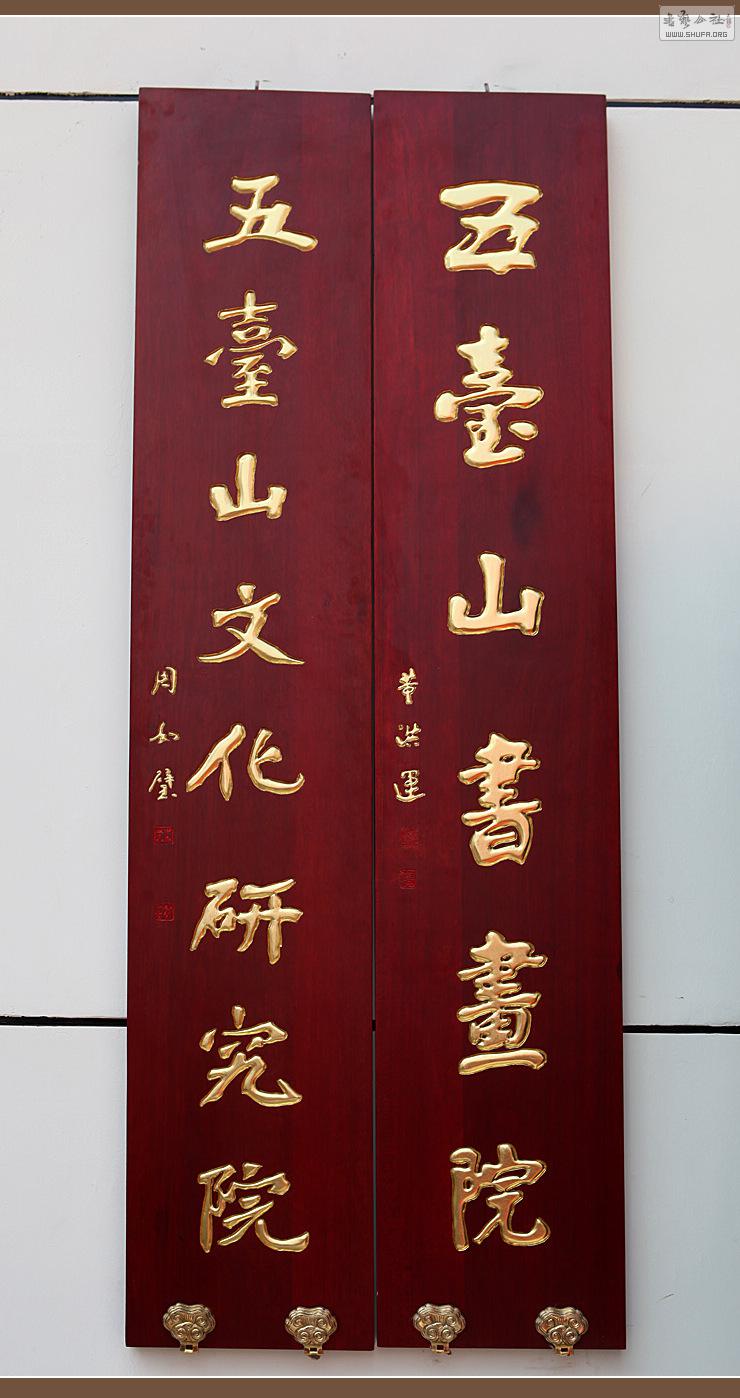 五臺山書畫院
董洪運
五臺山文化研究院
周如璧
书艺公社
WWW.SHUFA.ORG